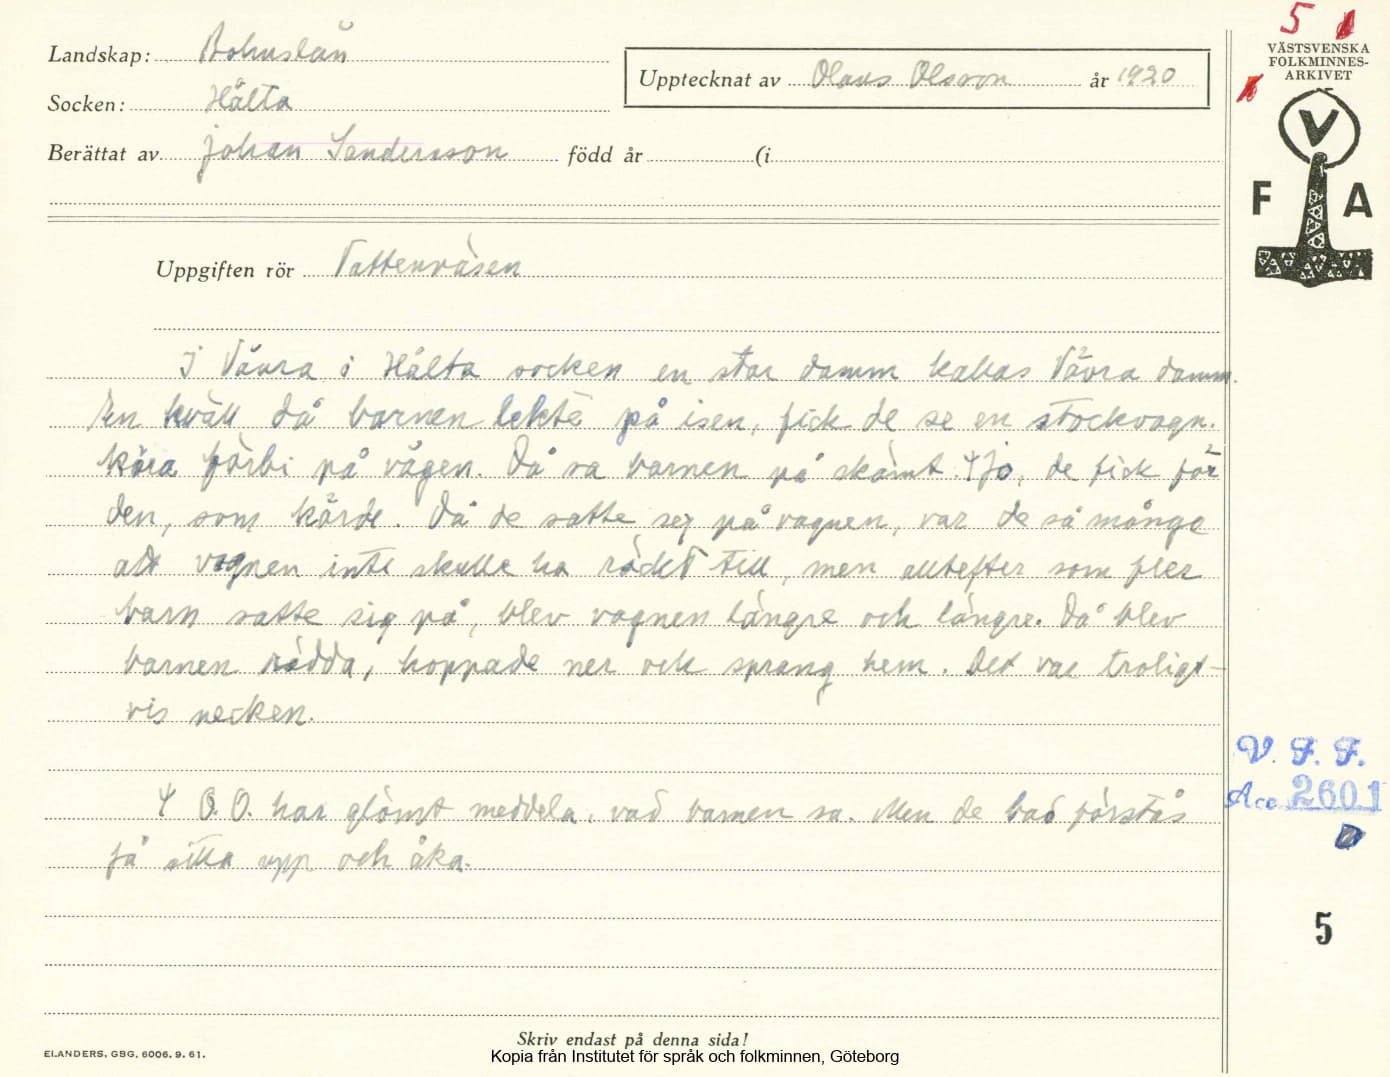 5
VÄSTSVENSKA
FOLKMINNES-
ARKIVET
V
F A
Landskap: Bohuslän
Socken: Hålta
Upptecknat av Olaus Olsson år 1920
Berättat av Johan Sandersson född år (i
Uppgiften rör Vattenväsen
I Vävra i Hålta socken en stor damm kallas Vävra damm.
En kväll då barnen lekte på isen, fick de se en stockvagn
köra förbi på vägen. Då sa barnen på skämt. Ψ Jo, de fick för
den, som körde. Då de satte seg på vagnen, var de så många
att vagnen inte skulle ha räckt till, men alltefter som fler
barn satte sig på, blev vagnen längre och längre. Då blev
barnen rädda, hoppade ner och sprang hem. Det var troligt-
vis necken.
Ψ O.O. har glömt meddela, vad barnen sa. Men de bad förstås
få sitta upp och åka.
V. F. F.
Acc 2601
5
Skriv endast på denna sida!
ELANDERS, GBG, 6006. 9. 61.
Kopia från Institutet för språk och folkminnen, Göteborg